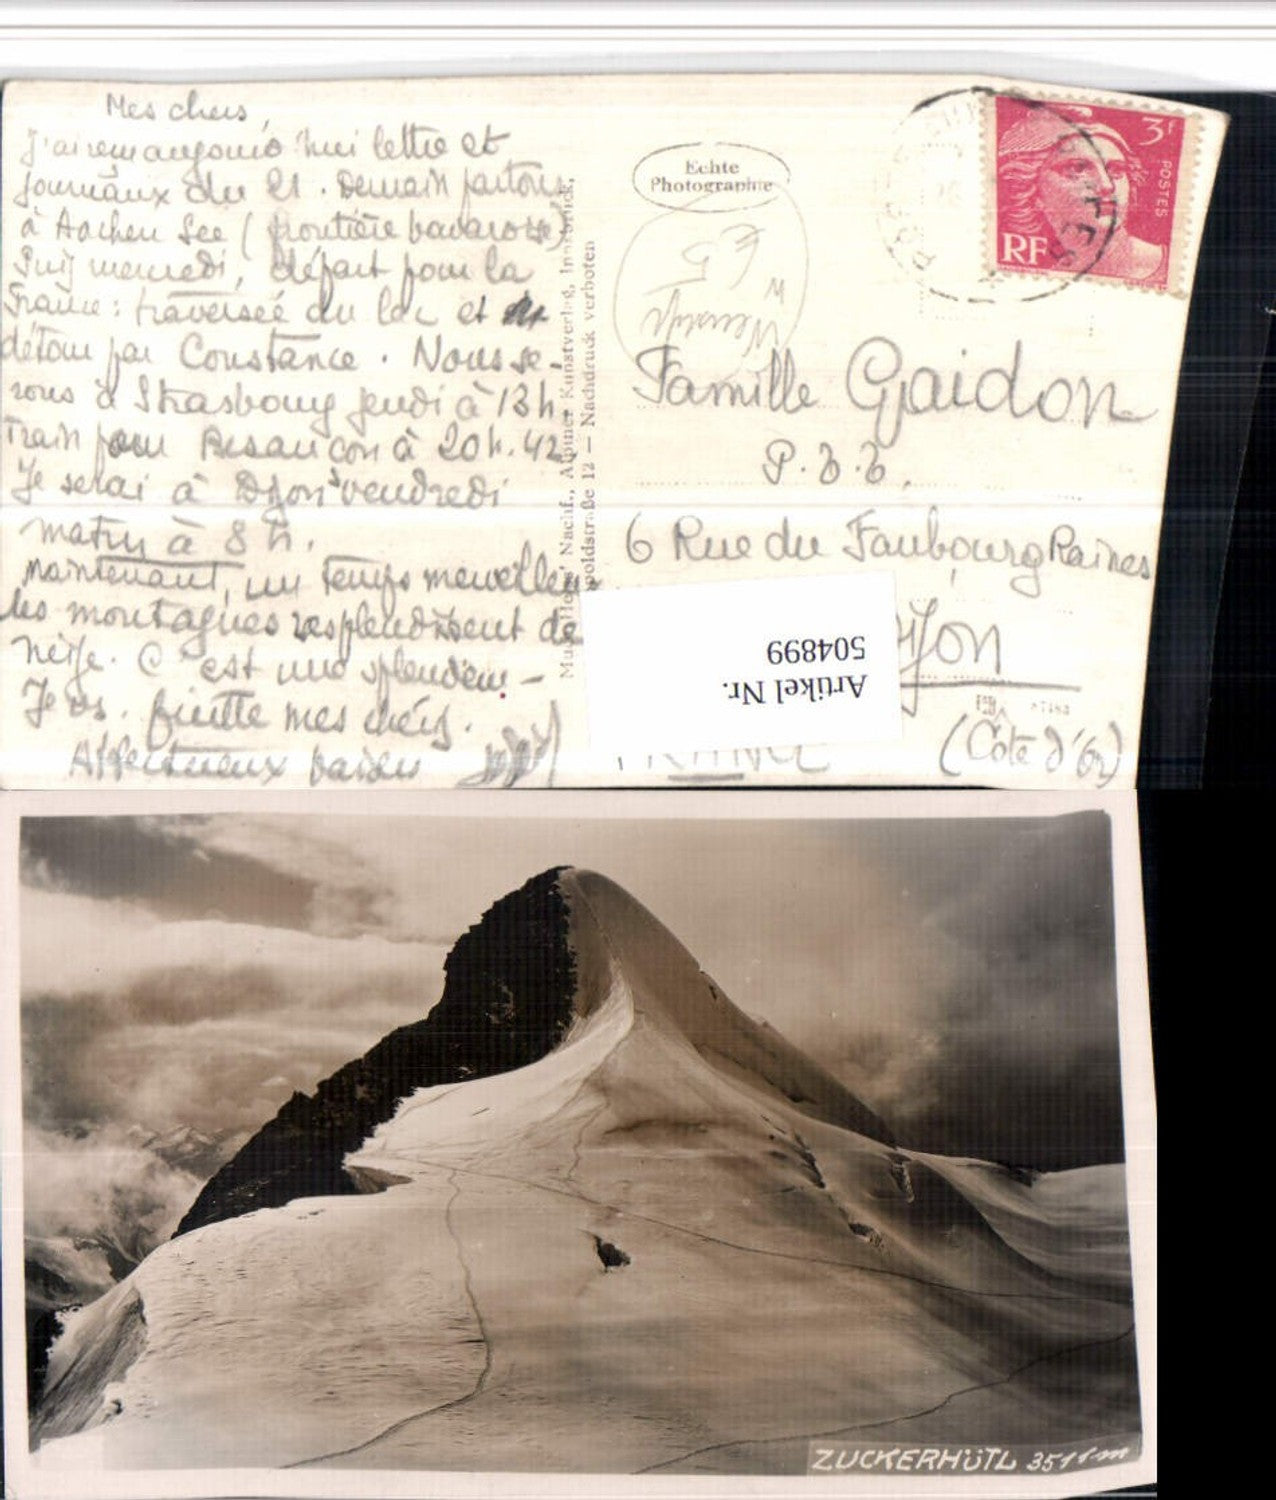 Mes chers,
J'ai reçu aujourd'hui lettre et
journaux du 21. Demain partons
à Aachen See (frontière bavaroise)
Puis mercredi, départ pour la
France: traversée du lac et
détour par Constance. Nous se-
rons à Strasbourg jeudi à 13h.
Train pour Besançon à 20h.42
Je serai à Dijon vendredi
matin à 8 h.
Maintenant, un temps merveilleux
les montagnes resplendissent de
neige. C'est une splendeur -
Je vs. quitte mes chers.
Affectueux baisers
Echte
Photographie
Nachf., Alpiner Kunstverlag, Innsbruck,
12 — Nachdruck verboten
€ 5
3F
POSTES
RF
Famille Gaidon
6 Rue du Faubourg Raines
Dijon
(Côte d'Or)
Artikel Nr.
504899
ZUCKERHÜTL 3511m